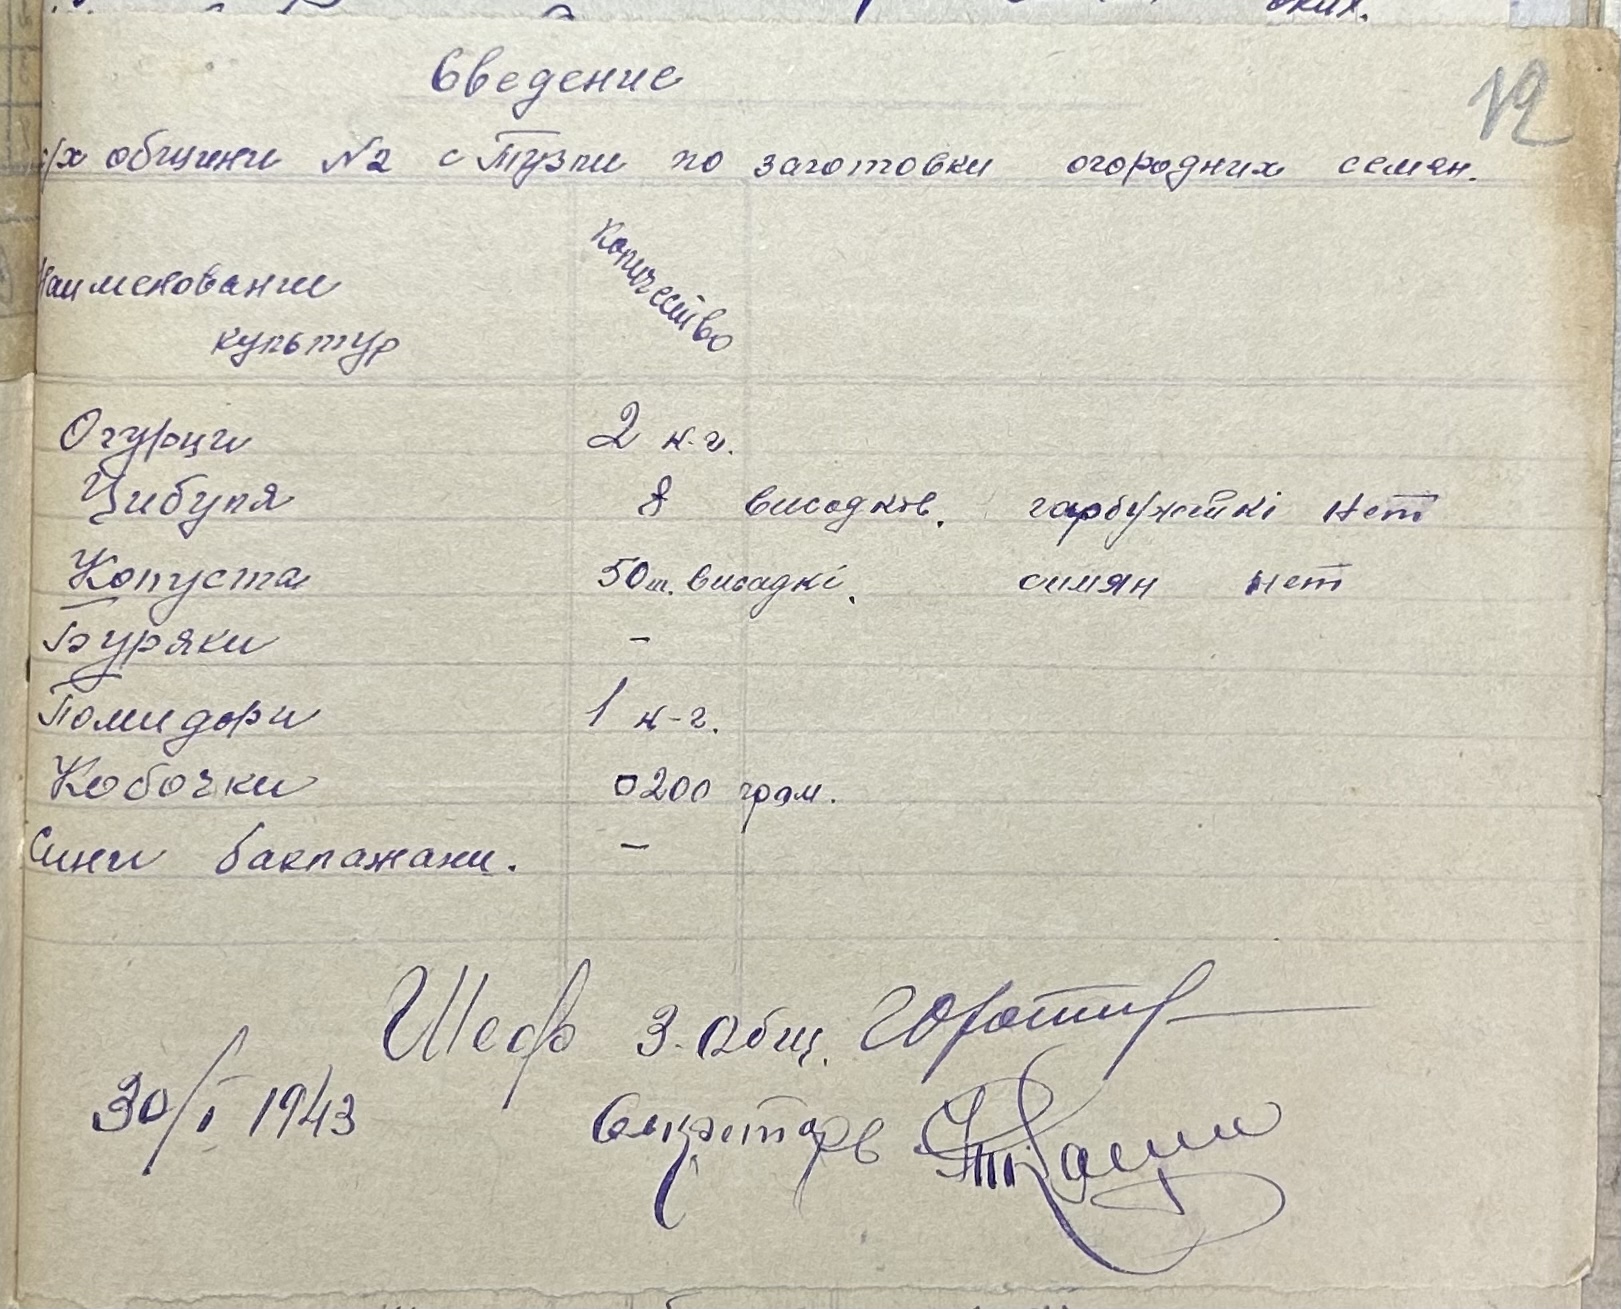 12
Сведение
с/х общини №2 с Тузли по заготовки огородних семян.
Наименование Количество
культур
Огурци 2 к-г.
Цибуля 8 висадків. нет
Копуста 50 ш. висадкі. симян нет
Буряки -
Помидори 1 к-г.
Кобочки 0200 грам.
Сини баклажани. -
Шеф З. Общ.
30/I 1943 Секретарь